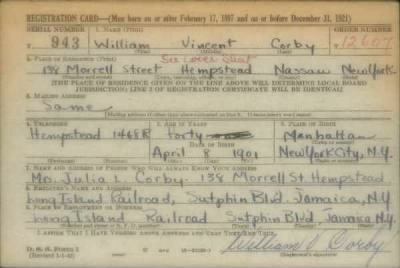 REGISTRATION CARD—(Men born on or after February 17, 1897 and on or before December 31, 1921)
SERIAL NUMBER 1. NAME (Print) ORDER NUMBER
T 943 William Vincent Corby 12607
(First) (Middle) (Last)
2. PLACE OF RESIDENCE (Print) See Cover Sheet
138 Morrell Street Hempstead Nassau New York
(Number and street) (Town, township, village, or city) (County) (State)
[THE PLACE OF RESIDENCE GIVEN ON THE LINE ABOVE WILL DETERMINE LOCAL BOARD
JURISDICTION; LINE 2 OF REGISTRATION CERTIFICATE WILL BE IDENTICAL]
3. MAILING ADDRESS
Same
[Mailing address if other than place indicated on line 2. If same insert word same]
4. TELEPHONE 5. AGE IN YEARS 6. PLACE OF BIRTH
Hempstead 1468R Forty Manhattan
DATE OF BIRTH (Town or county)
April 8 1901 New York City, N.Y.
(Exchange) (Number) (Mo.) (Day) (Yr.) (State or country)
7. NAME AND ADDRESS OF PERSON WHO WILL ALWAYS KNOW YOUR ADDRESS
Mrs. Julia L. Corby - 138 Morrell St Hempstead
8. EMPLOYER'S NAME AND ADDRESS
Long Island Railroad, Sutphin Blvd. Jamaica, N.Y
9. PLACE OF EMPLOYMENT OR BUSINESS
Long Island Railroad Sutphin Blvd Jamaica N.Y.
(Number and street or R. F. D. number) (Town) (County) (State)
I AFFIRM THAT I HAVE VERIFIED ABOVE ANSWERS AND THAT THEY ARE TRUE.
D. S. S. Form 1
(Revised 1-1-42) (over) William V Corby
(Registrant's signature)